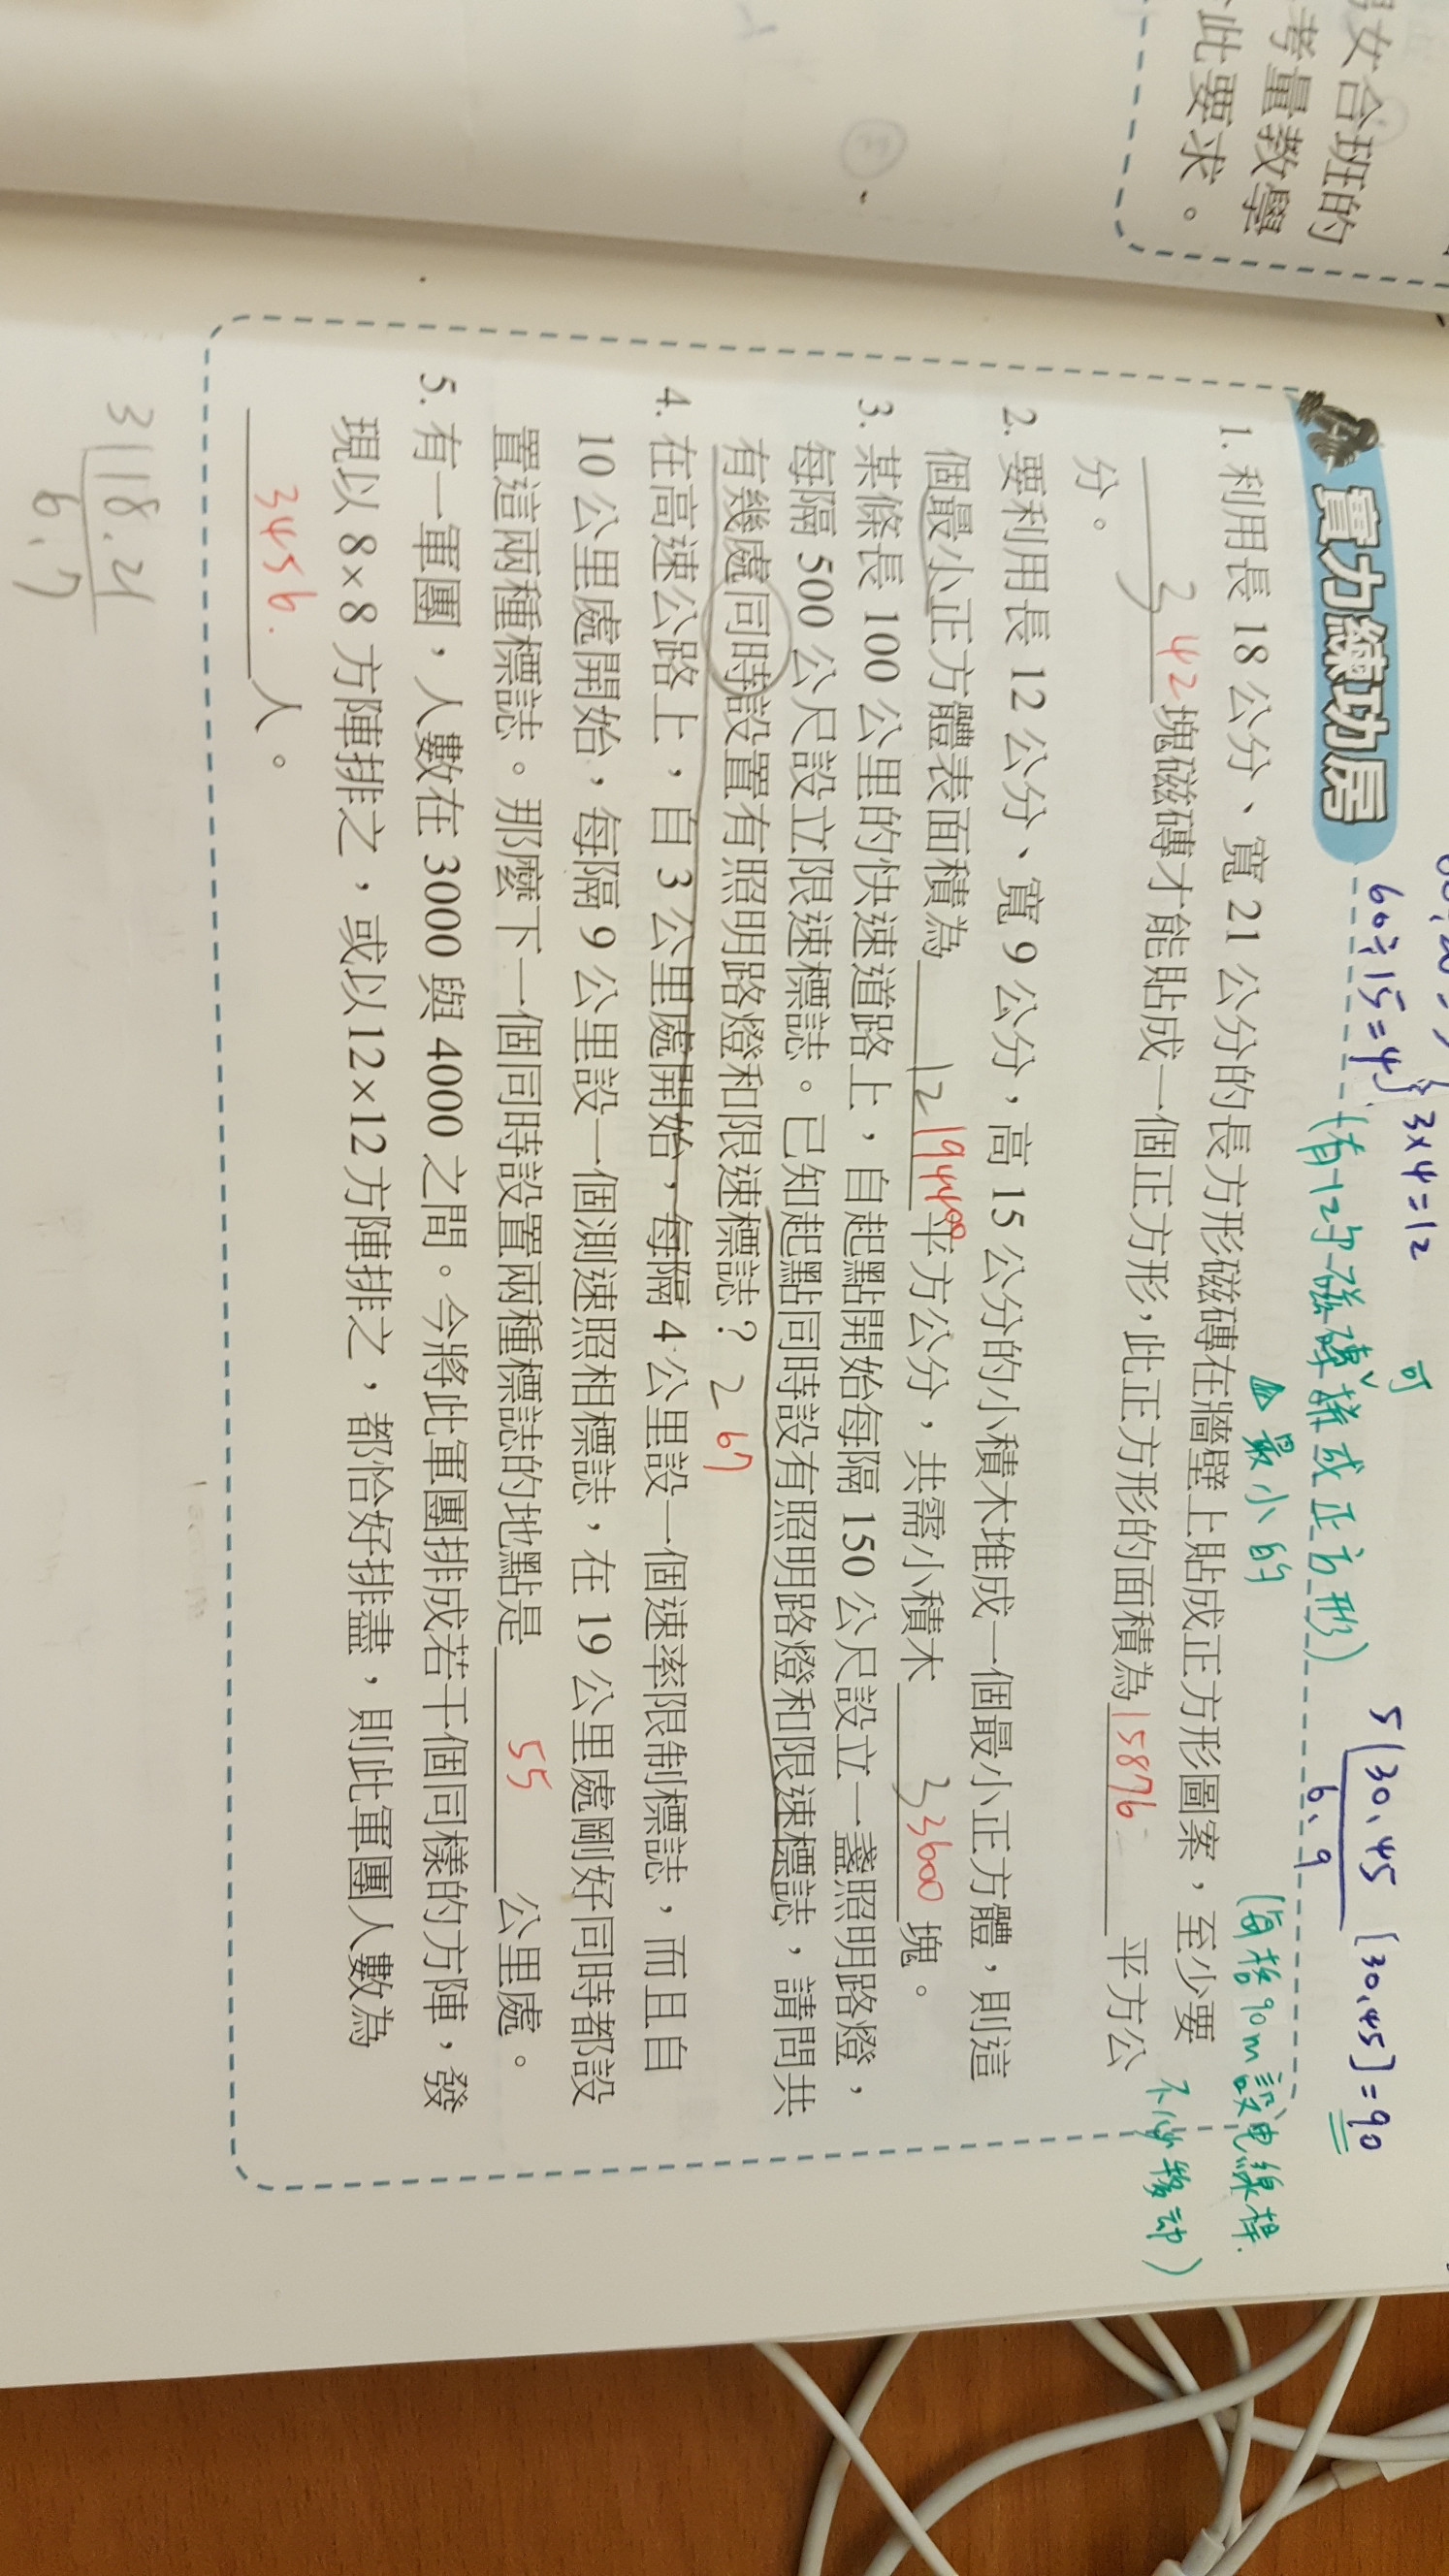 男女合班的
考量教學
此要求。
60÷15=4
3×4=12
(有12塊磁磚可拼成正方形)
5 30.45
6.9
[30.45]=90
(每格90m設電線桿
不必移動)
實力練功房
△最小的
1. 利用長 18 公分、寬 21 公分的長方形磁磚在牆壁上貼成正方形圖案，至少要
3 42 塊磁磚才能貼成一個正方形，此正方形的面積為 15876 平方公
分。
2. 要利用長 12 公分、寬 9 公分，高 15 公分的小積木堆成一個最小正方體，則這
個最小正方體表面積為 12 194400 平方公分，共需小積木 3 3600 塊。
3. 某條長 100 公里的快速道路上，自起點開始每隔 150 公尺設立一盞照明路燈，
每隔 500 公尺設立限速標誌。已知起點同時設有照明路燈和限速標誌，請問共
有幾處同時設置有照明路燈和限速標誌？ 2 67
4. 在高速公路上，自 3 公里處開始，每隔 4 公里設一個速率限制標誌，而且自
10 公里處開始，每隔 9 公里設一個測速照相標誌，在 19 公里處剛好同時都設
置這兩種標誌。那麼下一個同時設置兩種標誌的地點是 55 公里處。
5. 有一軍團，人數在 3000 與 4000 之間。今將此軍團排成若干個同樣的方陣，發
現以 8×8 方陣排之，或以12×12 方陣排之，都恰好排盡，則此軍團人數為
3456. 人。
3 18.21
6.7